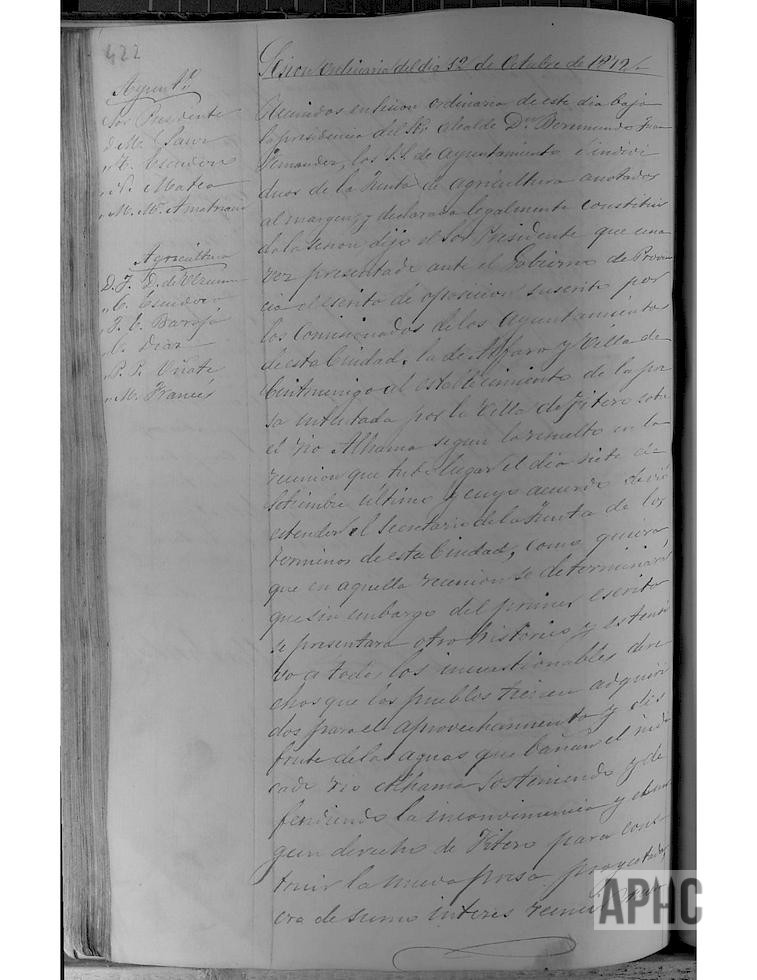 422
Sesion ordinaria del dia 12 de Octubre de 1872
Ayunt.º
Sor Presidente
d. M. Sanz
" M. Escudero
" N. Mateo
" M. M.ª Amatria
Agricultura
D. J. D. de
" C. Escudero
" J. C. Baroja
" C. Diaz
" P. P. Oñate
" M. Francés
Reunidos en sesion ordinaria de este dia bajo
la presidencia del Sr. Alcalde D.n Bermundo Juan
Fernandez, los S.S. de Ayuntamiento é indivi
duos de la Junta de agricultura anotados
al margen, y declarada legalmente constitui
da la sesion dijo el Sor Presidente que una
vez presentado ante el Gobierno de Provin
cia el escrito de oposicion suscrito por
los Comisionados de los Ayuntamientos
de esta Ciudad, la de Alfaro y Villa de
Cintruenigo al establecimiento de la pre
sa intentada por la Villa de Fitero sobre
el rio Alhama segun lo resuelto en la
reunion que tubo lugar el dia siete de
Setiembre ultimo y cuyo acuerdo debió
estender el Secretario de la Junta de los
terminos de esta Ciudad, como quiera
que en aquella reunion se determinára
que sin embargo del primer escrito
se presentara otro historico y estensi
vo a todos los incuestionables dere
chos que los pueblos tienen adquiri
dos para el aprovechamiento y dis
frute de las aguas que bañan el indi
cado rio Alhama sosteniendo y de
fendiendo la inconveniencia y
gun derecho de Fitero para cons
truir la nueva presa proyectada,
era de sumo interés reunir
APHC